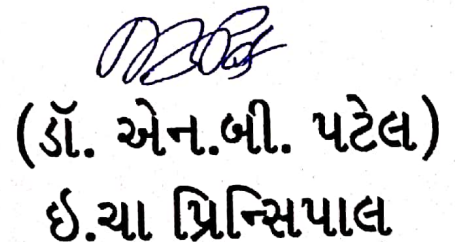 (ડૉ. એન.બી. પટેલ)
ઇ.ચા પ્રિન્સિપાલ